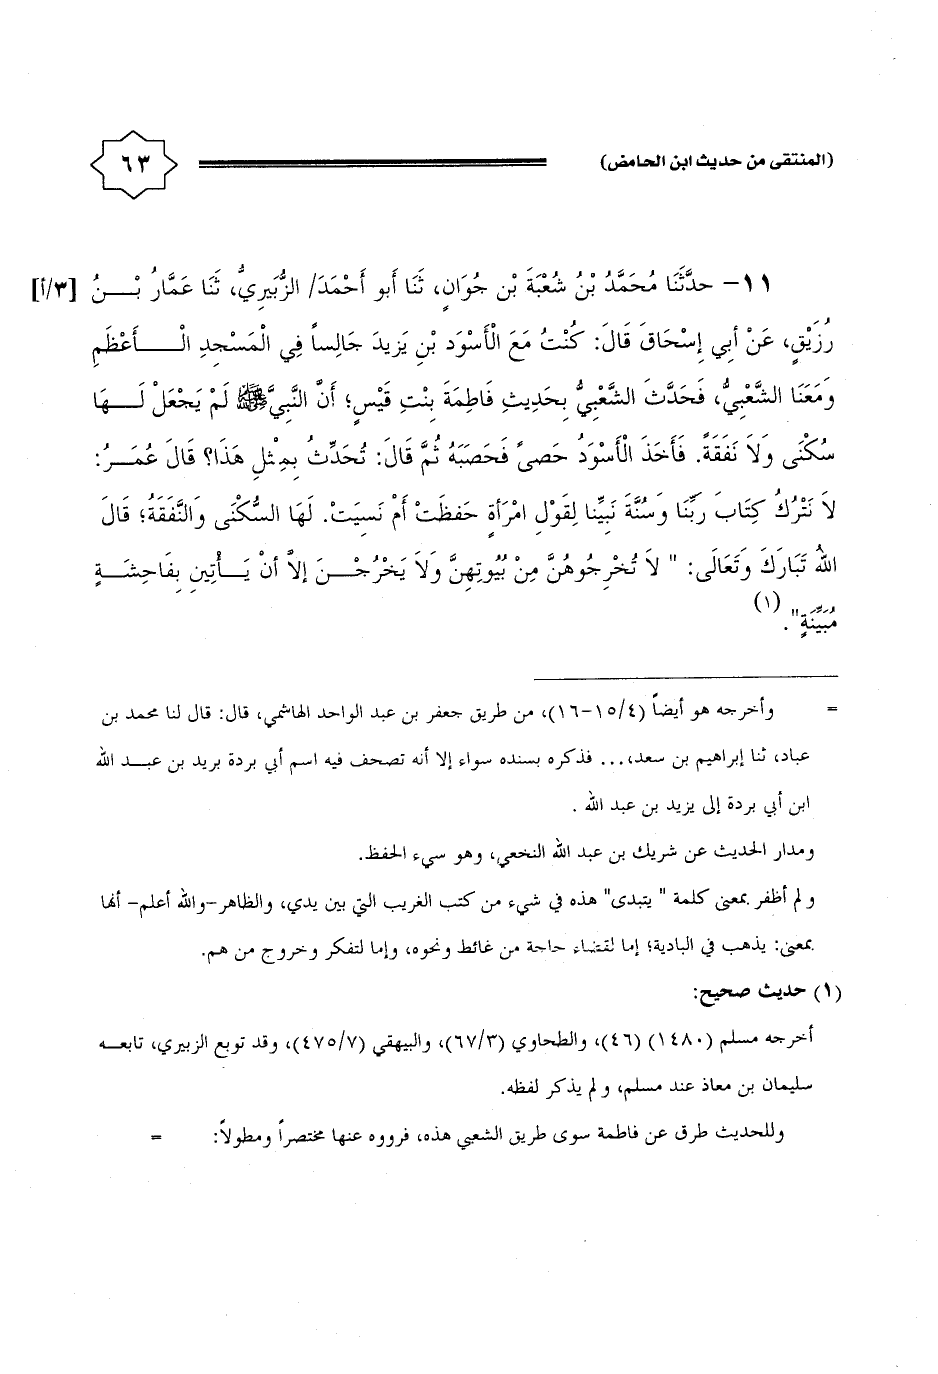 (المنتقى من حديث ابن الحامض) ٦٣
١١- حدَّثَنَا مُحَمَّدُ بْنُ شُعْبَةَ بْنِ جُوَانٍ، ثَنَا أَبو أَحْمَدَ/ الزُّبَيرِيُّ، ثَنَا عَمَّارُ بْنُ [٣/أ]
رُزَيْقٍ، عَنْ أَبي إِسْحَاقَ قَالَ: كُنْتُ مَعَ الْأَسْوَدِ بْنِ يَزِيدَ جَالِساً فِي الْمَسْجِدِ الْأَعْظَمِ
وَمَعَنَا الشَّعْبِيُّ، فَحَدَّثَ الشَّعْبِيُّ بِحَدِيثِ فَاطِمَةَ بِنْتِ قَيْسٍ؛ أَنَّ النَّبِيَّ ﷺ لَمْ يَجْعَلْ لَهَا
سُكْنَى وَلاَ نَفَقَةً. فَأَخَذَ الْأَسْوَدُ حَصىً فَحَصَبَهُ ثُمَّ قَالَ: تُحَدِّثُ بِمِثْلِ هَذَا؟ قَالَ عُمَرُ:
لاَ نَتْرُكُ كِتَابَ رَبِّنَا وَسُنَّةَ نَبِيِّنا لِقَوْلِ امْرَأَةٍ حَفِظَتْ أَمْ نَسِيَتْ. لَهَا السُّكْنَى وَالنَّفَقَةُ؛ قَالَ
اللهُ تَبَارَكَ وَتَعَالَى: " لاَ تُخْرِجُوهُنَّ مِنْ بُيُوتِهِنَّ وَلاَ يَخْرُجْنَ إِلاَّ أَنْ يَأْتِينَ بِفَاحِشَةٍ
مُبَيِّنَةٍ".(١)
= وأخرجه هو أيضاً (٤/ ١٥-١٦)، من طريق جعفر بن عبد الواحد الهاشمي، قال: قال لنا محمد بن
عباد، ثنا إبراهيم بن سعد،... فذكره بسنده سواء إلا أنه تصحف فيه اسم أبي بردة بريد بن عبد الله
ابن أبي بردة إلى يزيد بن عبد الله .
ومدار الحديث عن شريك بن عبد الله النخعي، وهو سيء الحفظ.
ولم أظفر بمعنى كلمة " يتبدى" هذه في شيء من كتب الغريب التي بين يدي، والظاهر -والله أعلم- أنها
بمعنى: يذهب في البادية؛ إما لقضاء حاجة من غائط ونحوه، وإما لتفكر وخروج من هم.
(١) حديث صحيح:
أخرجه مسلم (١٤٨٠) (٤٦)، والطحاوي (٦٧/٣)، والبيهقي (٤٧٥/٧)، وقد توبع الزبيري، تابعه
سليمان بن معاذ عند مسلم، ولم يذكر لفظه.
وللحديث طرق عن فاطمة سوى طريق الشعبي هذه، فرووه عنها مختصراً ومطولاً: =